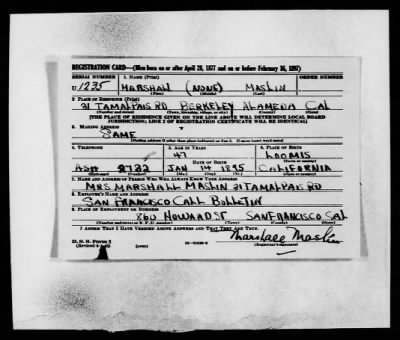 REGISTRATION CARD—(Men born on or after April 28, 1877 and on or before February 16, 1897)
SERIAL NUMBER 1. NAME (Print) ORDER NUMBER
U 1235 MARSHALL (NONE) MASLIN
(First) (Middle) (Last)
2. PLACE OF RESIDENCE (Print)
31 TAMALPAIS RD BERKELEY ALAMEDA CAL
(Number and street) (Town, township, village, or city) (County) (State)
[THE PLACE OF RESIDENCE GIVEN ON THE LINE ABOVE WILL DETERMINE LOCAL BOARD
JURISDICTION; LINE 2 OF REGISTRATION CERTIFICATE WILL BE IDENTICAL]
3. MAILING ADDRESS
SAME
[Mailing address if other than place indicated on line 2. If same insert word same]
4. TELEPHONE 5. AGE IN YEARS 6. PLACE OF BIRTH
47 LOOMIS
DATE OF BIRTH
ASH 2732 JAN 14 1895 CALIFORNIA
7. NAME AND ADDRESS OF PERSON WHO WILL ALWAYS KNOW YOUR ADDRESS
MRS MARSHALL MASLIN 31 TAMALPAIS RD
8. EMPLOYER'S NAME AND ADDRESS
SAN FRANCISCO CALL BULLETIN
9. PLACE OF EMPLOYMENT OR BUSINESS
860 HOWARD ST SAN FRANCISCO CAL
(Number and street or R. F. D. number) (Town) (County) (State)
I AFFIRM THAT I HAVE VERIFIED ABOVE ANSWERS AND THAT THEY ARE TRUE.
D. S. S. Form 1
(Revised 4-1-42) Marshall Maslin
(Registrant's signature)